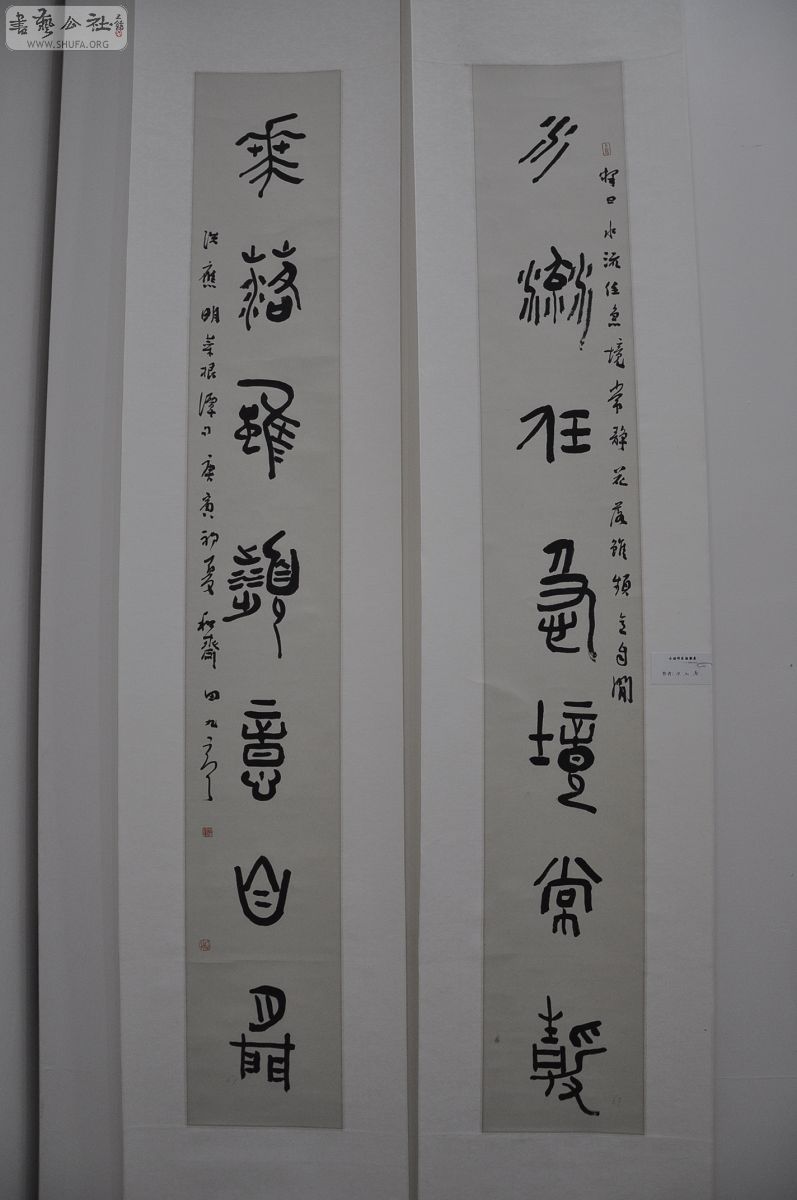 書藝公社
WWW.SHUFA.ORG
釋曰水流任急境常靜花落雖頻意自閒
水流任急境常靜
花落雖頻意自閒
洪應明菜根譚句庚寅初夏